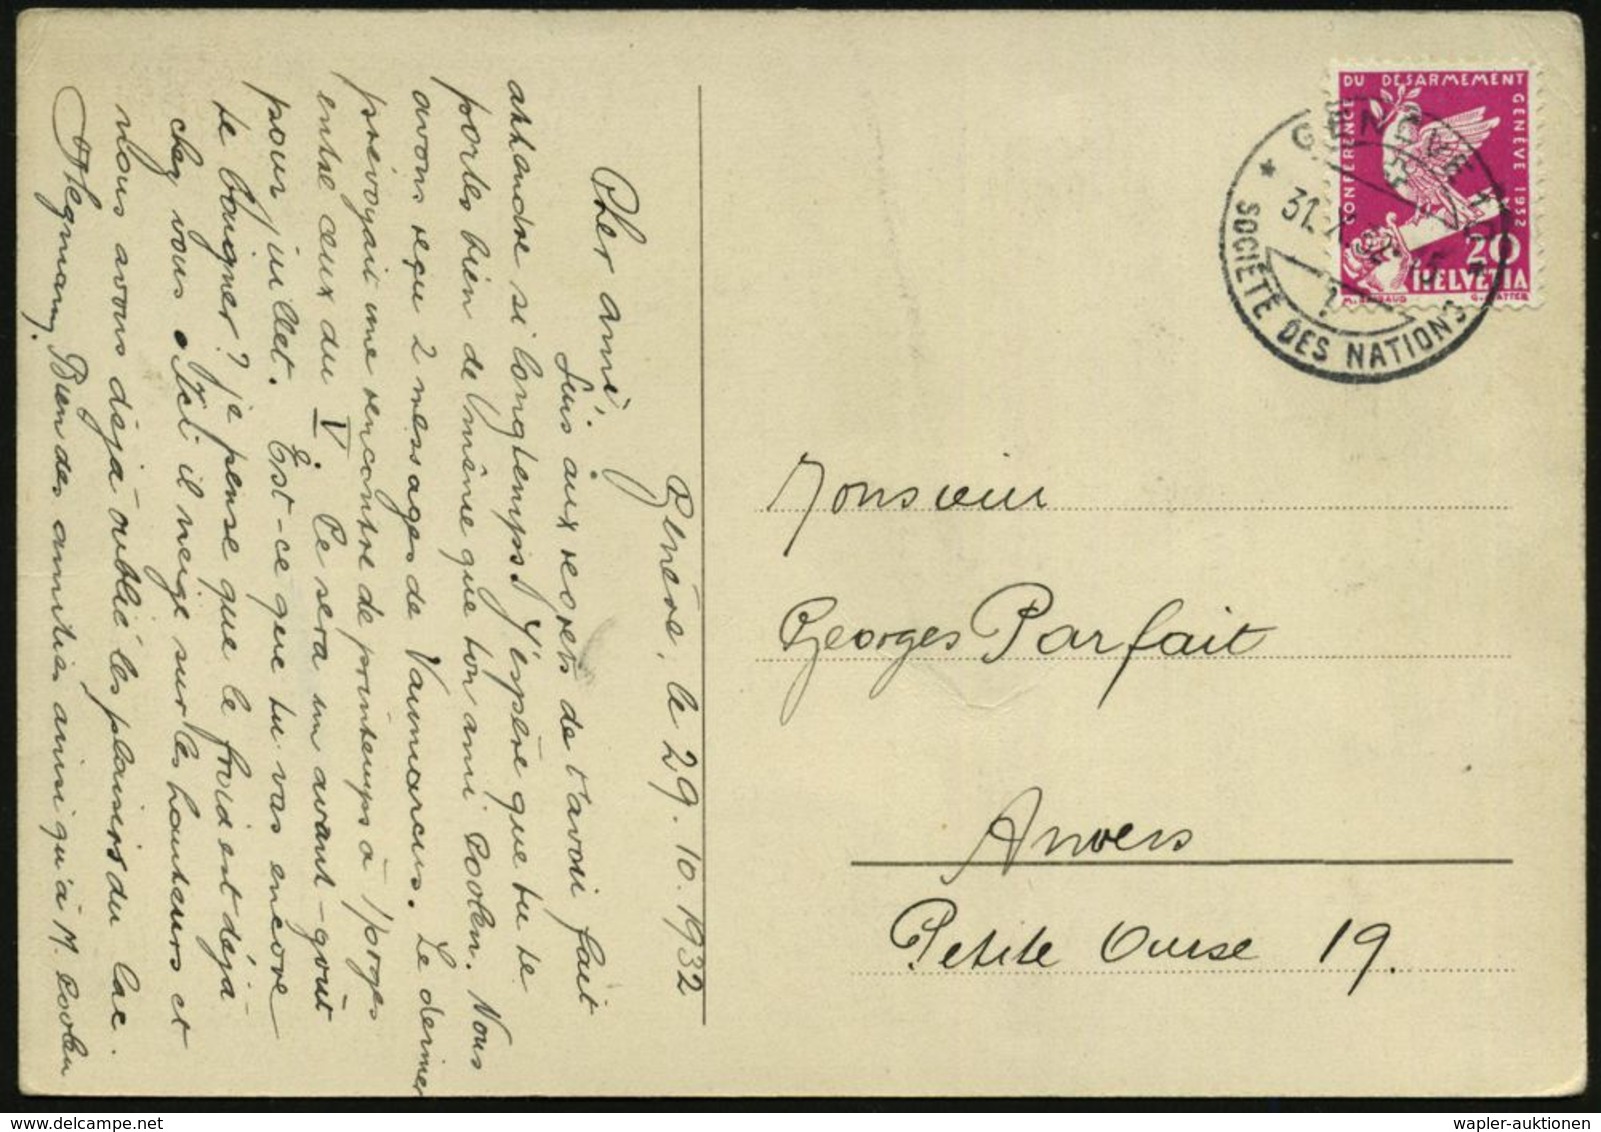 Genève, le 29. 10. 1932
Cher ami!
Suis aux regrets de t'avoir fait
attendre si longtemps. J'espère que tu te
portes bien de même que ton ami Coolen. Nous
avons reçu 2 messages de Vaumarcus. Le dernier
prévoyait une rencontre de printemps à
entre ceux du V. Ce sera un avant-goût
pour juillet. Est-ce que tu vas encore
te baigner? je pense que le froid est déjà
chez vous. Ici il neige sur les hauteurs et
nous avons déjà oublié les plaisirs du lac.
Bien des amitiés ainsi qu'à M. Coolen
CONFERENCE DU DESARMEMENT GENÈVE 1932
20
HELVETIA
GENÈVE 10
31. X. 32
SOCIÉTÉ DES NATIONS
Monsieur
Georges Parfait
Anvers
Petite Ourse 19.
wapler-auktionen